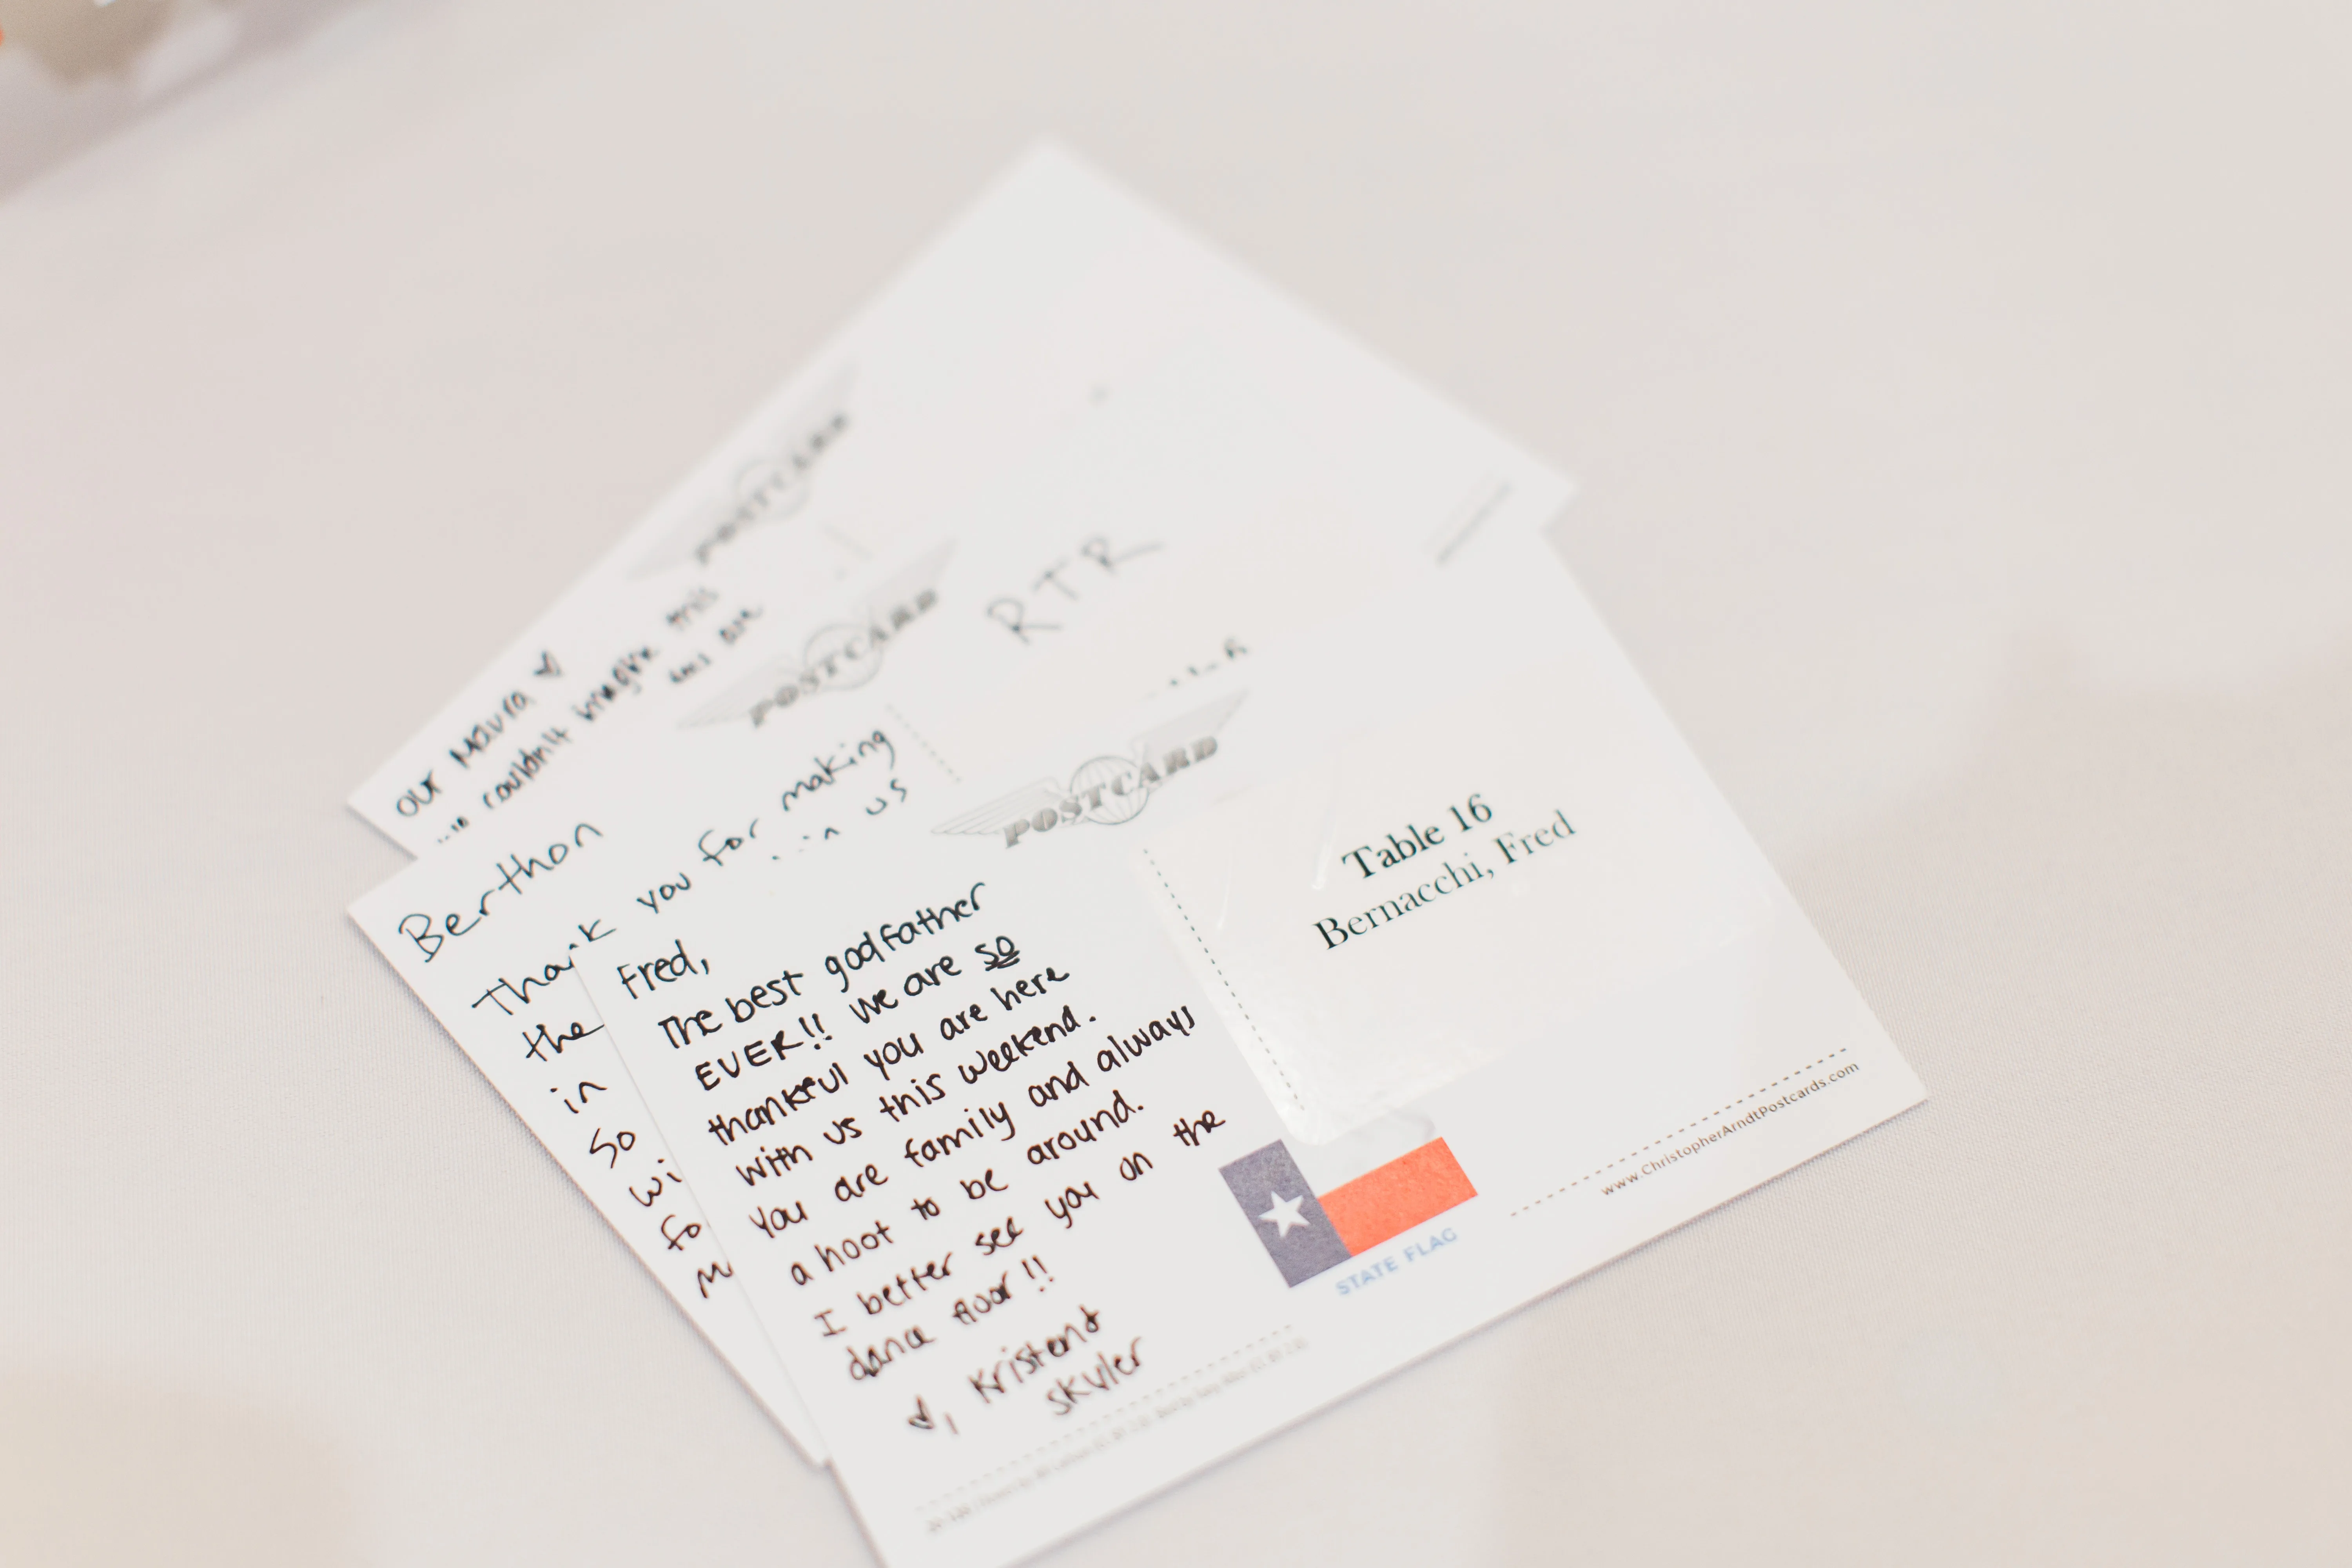 POSTCARD
our Maura
couldn't imagine this
are
POSTCARD
RTR
Berthon
Thank you for making
the
us
in
so
wi
fo
m
POSTCARD
Fred,
The best godfather
EVER!! We are so
thankful you are here
with us this weekend.
You are family and always
a hoot to be around.
I better see you on the
dance floor!!
Kristen &
Skyler
Table 16
Bernacchi, Fred
STATE FLAG
www.ChristopherArndtPostcards.com